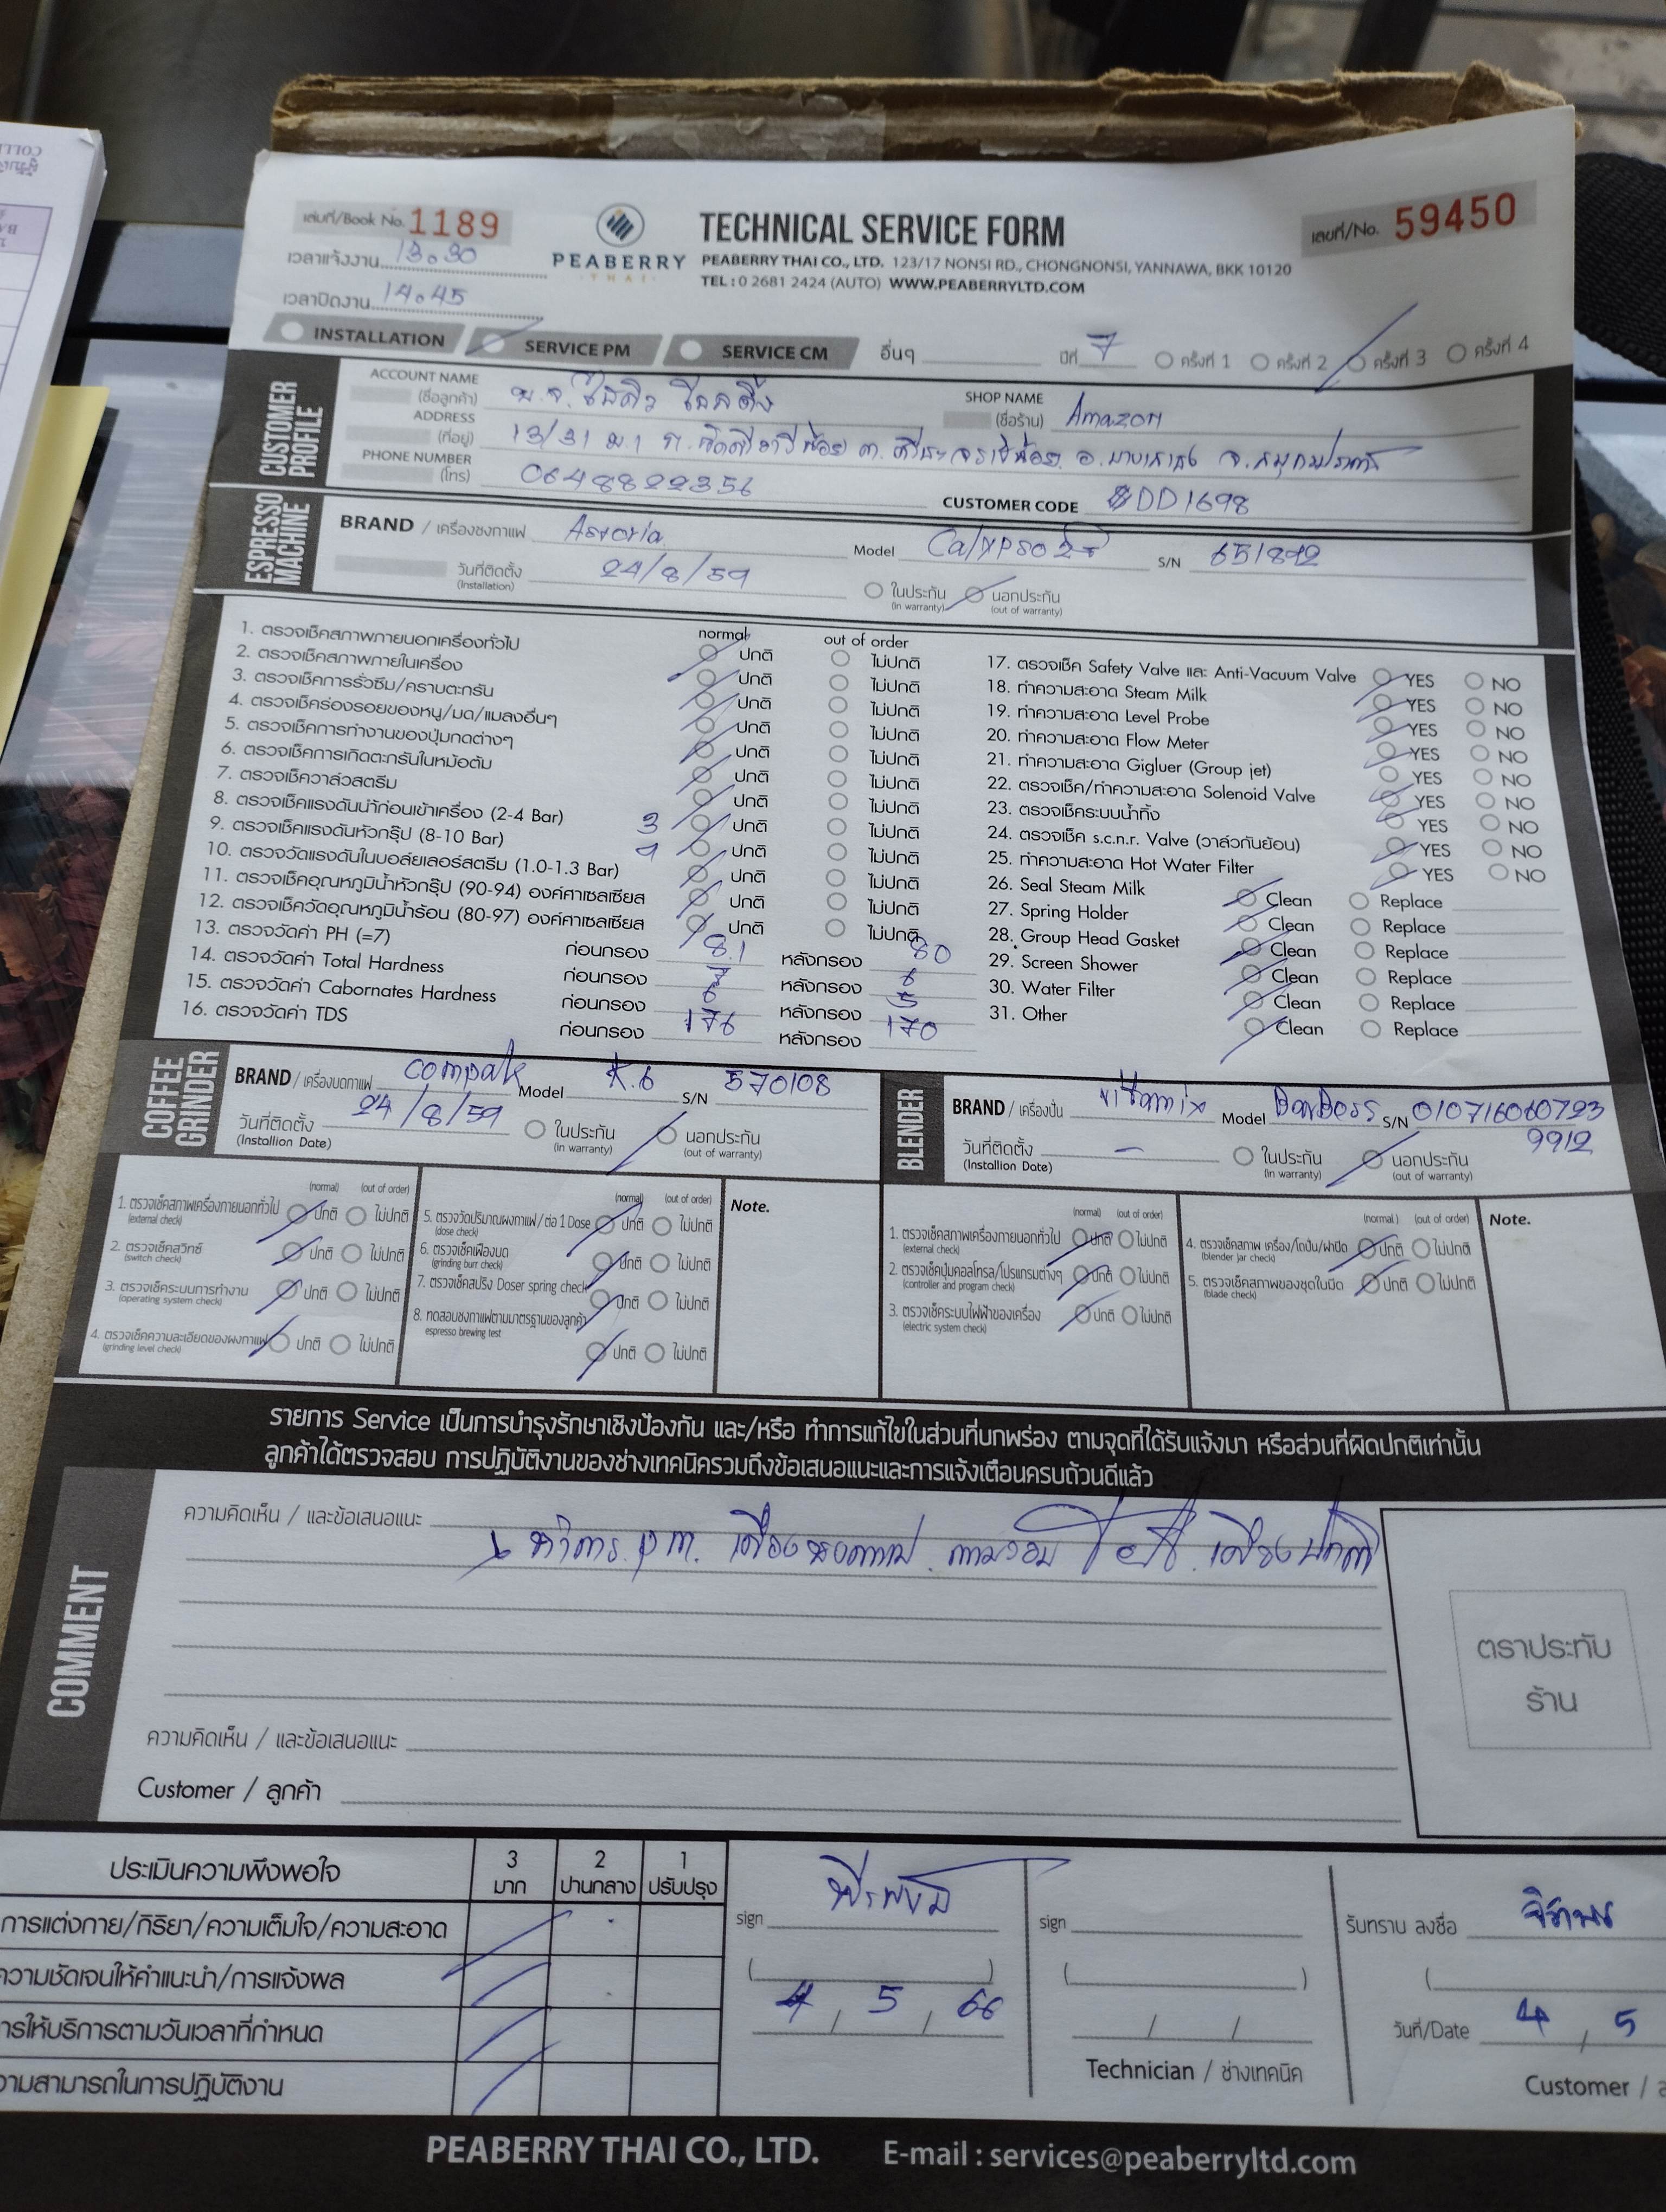 เล่มที่/Book No. 1189
เลขที่/No. 59450
PEABERRY
THAI
TECHNICAL SERVICE FORM
PEABERRY THAI CO., LTD. 123/17 NONSI RD., CHONGNONSI, YANNAWA, BKK 10120
TEL : 0 2681 2424 (AUTO) WWW.PEABERRYLTD.COM
เวลาแจ้งงาน 13.30
เวลาปิดงาน 14.45
INSTALLATION SERVICE PM SERVICE CM อื่นๆ ปีที่ 7 ครั้งที่ 1 ครั้งที่ 2 ครั้งที่ 3 ครั้งที่ 4
CUSTOMER PROFILE
ACCOUNT NAME (ชื่อลูกค้า) SHOP NAME (ชื่อร้าน) Amazon
ADDRESS (ที่อยู่) 13/31 ม.1
PHONE NUMBER (โทร) 0648822356 CUSTOMER CODE DD1698
ESPRESSO MACHINE
BRAND / เครื่องชงกาแฟ Astoria Model Calypso S/N 651892
วันที่ติดตั้ง (Installation) 24/8/59 ในประกัน (in warranty) นอกประกัน (out of warranty)
normal out of order
1. ตรวจเช็คสภาพภายนอกเครื่องทั่วไป ปกติ ไม่ปกติ
2. ตรวจเช็คสภาพภายในเครื่อง ปกติ ไม่ปกติ
3. ตรวจเช็คการรั่วซึม/คราบตะกรัน ปกติ ไม่ปกติ
4. ตรวจเช็คร่องรอยของหนู/มด/แมลงอื่นๆ ปกติ ไม่ปกติ
5. ตรวจเช็คการทำงานของปุ่มกดต่างๆ ปกติ ไม่ปกติ
6. ตรวจเช็คการเกิดตะกรันในหม้อต้ม ปกติ ไม่ปกติ
7. ตรวจเช็ควาล์วสตรีม ปกติ ไม่ปกติ
8. ตรวจเช็คแรงดันน้ำก่อนเข้าเครื่อง (2-4 Bar) 3 ปกติ ไม่ปกติ
9. ตรวจเช็คแรงดันหัวกรุ๊ป (8-10 Bar) 9 ปกติ ไม่ปกติ
10. ตรวจวัดแรงดันในบอล์ยเลอร์สตรีม (1.0-1.3 Bar) ปกติ ไม่ปกติ
11. ตรวจเช็คอุณหภูมิน้ำหัวกรุ๊ป (90-94) องค์ศาเซลเซียส ปกติ ไม่ปกติ
12. ตรวจเช็ควัดอุณหภูมิน้ำร้อน (80-97) องค์ศาเซลเซียส ปกติ ไม่ปกติ
13. ตรวจวัดค่า PH (=7) ก่อนกรอง 8.1 หลังกรอง 80
14. ตรวจวัดค่า Total Hardness ก่อนกรอง 7 หลังกรอง 6
15. ตรวจวัดค่า Cabornates Hardness ก่อนกรอง 6 หลังกรอง 5
16. ตรวจวัดค่า TDS ก่อนกรอง 176 หลังกรอง 170
17. ตรวจเช็ค Safety Valve และ Anti-Vacuum Valve YES NO
18. ทำความสะอาด Steam Milk YES NO
19. ทำความสะอาด Level Probe YES NO
20. ทำความสะอาด Flow Meter YES NO
21. ทำความสะอาด Gigluer (Group jet) YES NO
22. ตรวจเช็ค/ทำความสะอาด Solenoid Valve YES NO
23. ตรวจเช็คระบบน้ำทิ้ง YES NO
24. ตรวจเช็ค s.c.n.r. Valve (วาล์วกันย้อน) YES NO
25. ทำความสะอาด Hot Water Filter YES NO
26. Seal Steam Milk Clean Replace
27. Spring Holder Clean Replace
28. Group Head Gasket Clean Replace
29. Screen Shower Clean Replace
30. Water Filter Clean Replace
31. Other Clean Replace
COFFEE GRINDER
BRAND / เครื่องบดกาแฟ compak Model K.6 S/N 570108
วันที่ติดตั้ง (Installion Date) 24/8/59 ในประกัน (in warranty) นอกประกัน (out of warranty)
BLENDER
BRAND / เครื่องปั่น vitamix Model BarBoss S/N 010716060723
9912
วันที่ติดตั้ง (Installion Date) - ในประกัน (in warranty) นอกประกัน (out of warranty)
(normal) (out of order)
1. ตรวจเช็คสภาพเครื่องภายนอกทั่วไป (external check) ปกติ ไม่ปกติ
2. ตรวจเช็คสวิทช์ (switch check) ปกติ ไม่ปกติ
3. ตรวจเช็คระบบการทำงาน (operating system check) ปกติ ไม่ปกติ
4. ตรวจเช็คความละเอียดของผงกาแฟ (grinding level check) ปกติ ไม่ปกติ
(normal) (out of order)
5. ตรวจวัดปริมาณผงกาแฟ/ต่อ 1 Dose (dose check) ปกติ ไม่ปกติ
6. ตรวจเช็คเฟืองบด (grinding burr check) ปกติ ไม่ปกติ
7. ตรวจเช็คสปริง Doser spring check ปกติ ไม่ปกติ
8. ทดสอบชงกาแฟตามมาตรฐานของลูกค้า espresso brewing test ปกติ ไม่ปกติ
Note.
(normal) (out of order)
1. ตรวจเช็คสภาพเครื่องภายนอกทั่วไป (external check) ปกติ ไม่ปกติ
2. ตรวจเช็คปุ่มคอลโทรล/โปรแกรมต่างๆ (controller and program check) ปกติ ไม่ปกติ
3. ตรวจเช็คระบบไฟฟ้าของเครื่อง (electric system check) ปกติ ไม่ปกติ
(normal ) (out of order)
4. ตรวจเช็คสภาพ เครื่อง/โถปั่น/ฝาปิด (blender jar check) ปกติ ไม่ปกติ
5. ตรวจเช็คสภาพของชุดใบมีด (blade check) ปกติ ไม่ปกติ
Note.
รายการ Service เป็นการบำรุงรักษาเชิงป้องกัน และ/หรือ ทำการแก้ไขในส่วนที่บกพร่อง ตามจุดที่ได้รับแจ้งมา หรือส่วนที่ผิดปกติเท่านั้น
ลูกค้าได้ตรวจสอบ การปฏิบัติงานของช่างเทคนิครวมถึงข้อเสนอแนะและการแจ้งเตือนครบถ้วนดีแล้ว
COMMENT
ความคิดเห็น / และข้อเสนอแนะ ทำการ pm. เครื่องชงกาแฟ
ตราประทับ
ร้าน
ความคิดเห็น / และข้อเสนอแนะ
Customer / ลูกค้า
ประเมินความพึงพอใจ 3 มาก 2 ปานกลาง 1 ปรับปรุง
การแต่งกาย/กิริยา/ความเต็มใจ/ความสะอาด
ความชัดเจนให้คำแนะนำ/การแจ้งผล
ารให้บริการตามวันเวลาที่กำหนด
วามสามารถในการปฏิบัติงาน
sign
4 / 5 / 66
sign
Technician / ช่างเทคนิค
รับทราบ ลงชื่อ
วันที่/Date 4 / 5
Customer /
PEABERRY THAI CO., LTD. E-mail : services@peaberryltd.com